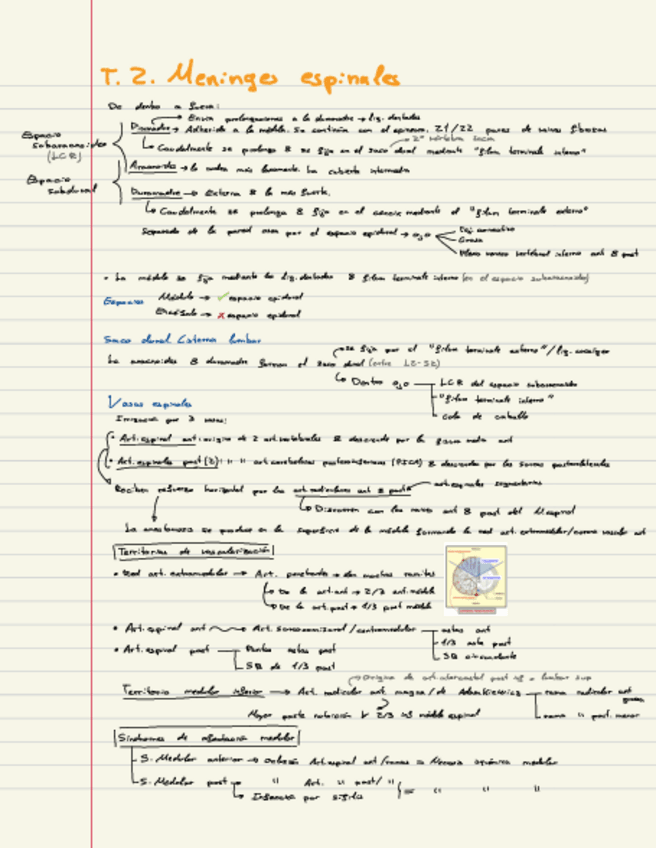 T. 2. Meninges espinales
De dentro a fuera:
Envía prolongaciones a la duramadre → lig. dentados
Espacio subaracnoideo (LCR)
Piamadre → Adherida a la médula. Se continúa con el 21/22 pares de
2ª vértebra sacra
Caudalmente se prolonga & se fija en el saco dural mediante "filum terminale interno"
Aracnoides →
Espacio subdural
Duramadre → Externa & la más fuerte.
Caudalmente se prolonga & fija en el coccix mediante el "filum terminale externo"
Separada de la pared ósea por el espacio epidural → ojo
Tej. conectivo
Grasa
Plexo venoso vertebral interno ant & post
• La médula se fija mediante los lig. dentados & filum terminale interno (en el espacio subaracnoideo)
Espacios Médula → ✓ espacio epidural
Encéfalo → x espacio epidural
Saco dural/cisterna lumbar
se fija por el "filum terminale externo"/lig. coccígeo
La aracnoides & duramadre forman el saco dural (entre L2-S2)
Dentro ojo LCR del espacio subaracnoideo
"filum terminale interno"
cola de caballo
Vasos espinales
Irrigación por 3 vasos:
• Art. espinal ant: origen de 2 art. vertebrales & desciende por la fisura media ant
• Art. espinales post (2): " " art. cerebelosas posteroinferiores (PICA) & desciende por los surcos posterolaterales
Reciben refuerzo horizontal por las art. radiculares ant & post art. espinales segmentarias
Discurren con las raíces ant & post del N. espinal
La anastomosis se produce en la superficie de la médula formando la red art. extramedular/corona vascular
Territorios de vascularización
• Red art. extramedular → Art. penetrante →
De la art. ant → 2/3 ant. médula
De la art. post → 1/3 post médula
• Art. espinal ant Art. surcocomisural/centromedular astas ant
1/3 asta post
SB circundante
• Art. espinal post Puntas astas post
SB de 1/3 post
Origina de art. intercostal post inf o lumbar sup
Territorio medular inferior → Art. radicular ant. magna/de Adamkiewicz rama radicular ant
rama " post. menor
Mayor parte 2/3 inf médula espinal
Síndromes de afectación medular
S. Medular anterior → oclusión Art. espinal ant/ramas = Necrosis isquémica medular
S. Medular post " Art. " post/ "
por sífilis = " " "